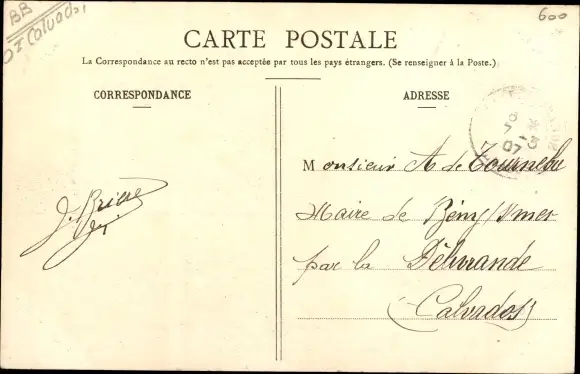 BB
Calvados
600
CARTE POSTALE
La Correspondance au recto n'est pas acceptée par tous les pays étrangers. (Se renseigner à la Poste.)
CORRESPONDANCE
ADRESSE
Monsieur A de Tournebu
Maire de Bény s/mer
par la Délivrande
(Calvados)
J. Brière
07